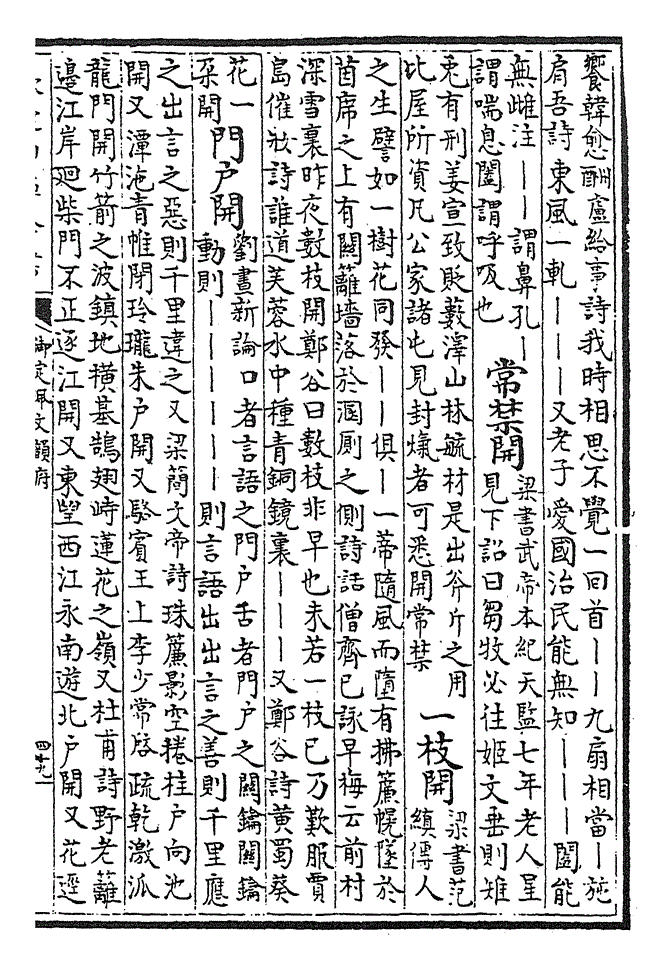 饗韓愈酬盧給事詩我時相思不覺一回首丨丨九扇相當丨施
肩吾詩東風一軋丨丨丨丨又老子愛國治民能無知丨丨丨丨闔能
無雌注丨丨謂鼻孔丨
謂喘息闔謂呼吸也
常禁開
梁書武帝本紀天監七年老人星
見下詔曰芻牧必往姬文垂則雉
兎有刑姜宣致貶藪澤山林毓材是出斧斤之用
比屋所資凡公家諸屯見封爊者可悉開常禁
一枝開
梁書范
縝傳人
之生譬如一樹花同發丨丨俱丨一蔕隨風而墮有拂簾幌墜於
茵席之上有關籬墻落於溷厠之側詩話僧齊已詠早梅云前村
深雪裏昨夜數枝開鄭谷曰數枝非早也未若一枝已乃歎服賈
島催妝詩誰道芙蓉水中種青銅鏡裏丨丨丨又鄭谷詩黄蜀葵
花一
朶開
門户開
劉晝新論口者言語之門户舌者門户之關鑰關鑰
動則丨丨丨丨丨丨則言語出出言之善則千里應
之出言之惡則千里違之又梁簡文帝詩珠簾影空捲桂户向池
開又潭沲青帷閉玲瓏朱户開又駱賓王上李少常啓疏乾激派
龍門開竹箭之波鎮地横基鵠翅峙蓮花之嶺又杜甫詩野老籬
邊江岸廻柴門不正逐江開又東望西江永南遊北户開又花逕
御定佩文韻府
四十九